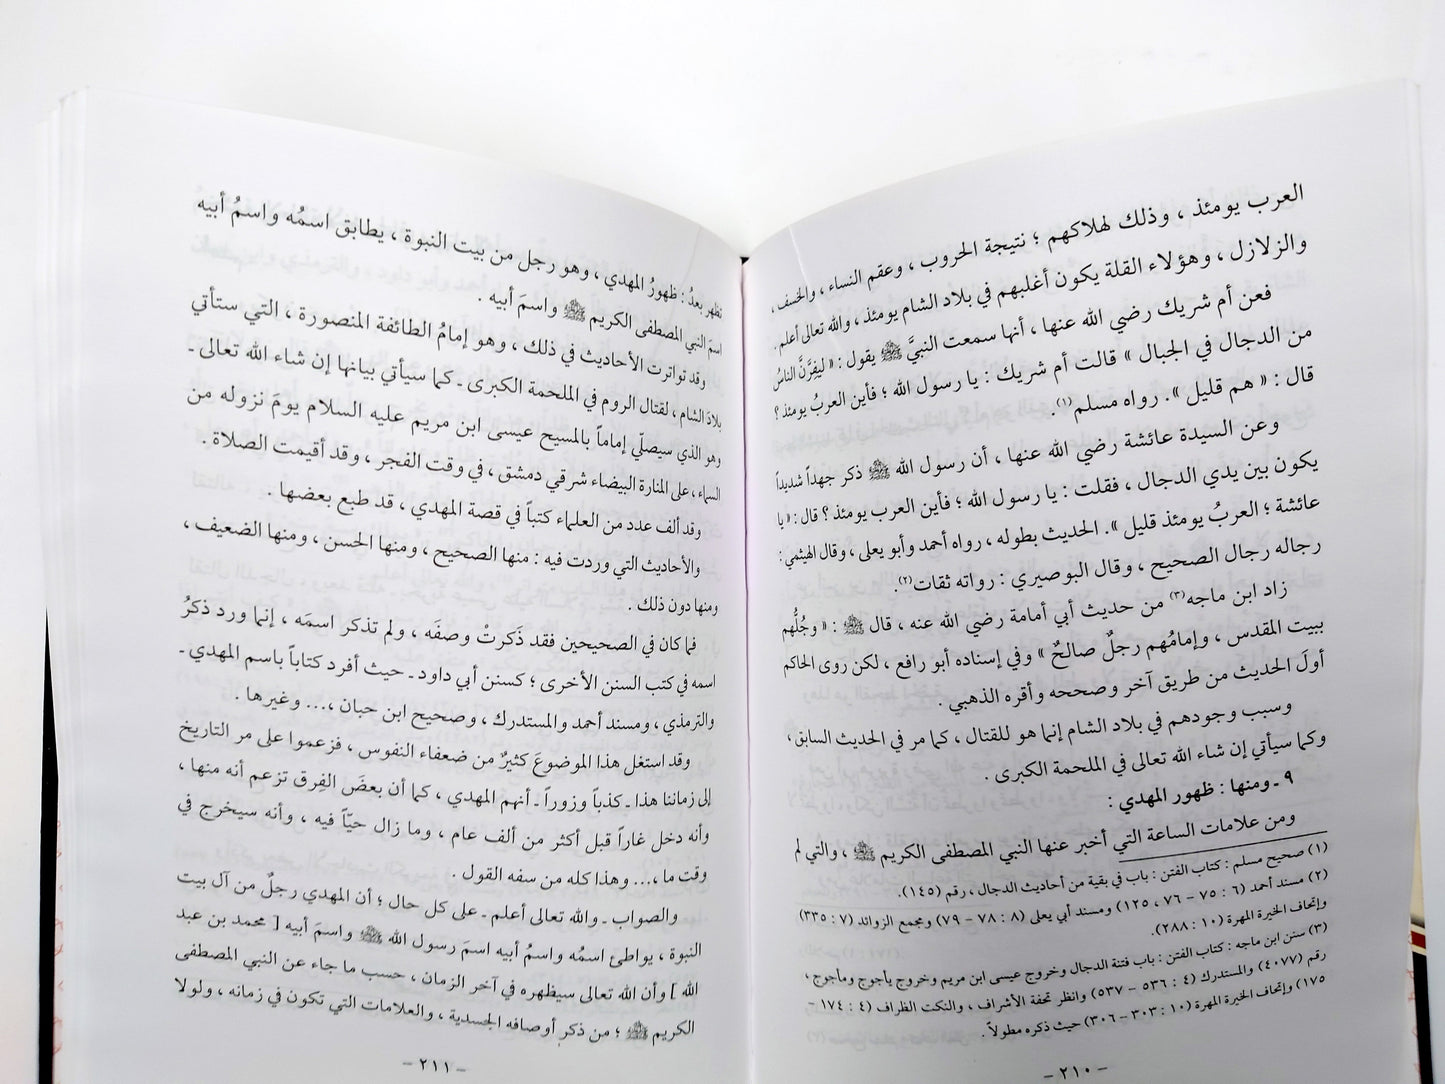 العرب يومئذ ، وذلك لهلاكهم ؛ نتيجة الحروب ، وعقم النساء ، والخسف ،
والزلازل ، وهؤلاء القلة يكون أغلبهم في بلاد الشام يومئذ ، والله تعالى أعلم .
فعن أم شريك رضي الله عنها ، أنها سمعت النبيَّ ﷺ يقول : « ليفِرَّنَّ الناسُ
من الدجال في الجبال » قالت أم شريك : يا رسول الله ؛ فأين العربُ يومئذ ؟
قال : « هم قليل » . رواه مسلم(١).
وعن السيدة عائشة رضي الله عنها ، أن رسول الله ﷺ ذكر جهداً شديداً
يكون بين يدي الدجال ، فقلت : يا رسول الله ؛ فأين العرب يومئذ ؟ قال : « يا
عائشة ؛ العربُ يومئذ قليل » . الحديث بطوله ، رواه أحمد وأبو يعلى ، وقال الهيثمي :
رجاله رجال الصحيح ، وقال البوصيري : رواته ثقات(٢).
زاد ابن ماجه(٣) من حديث أبي أمامة رضي الله عنه ، قال ﷺ : « وجُلُّهم
ببيت المقدس ، وإمامُهم رجلٌ صالحٌ » وفي إسناده أبو رافع ، لكن روى الحاكم
أولَ الحديث من طريق آخر وصححه وأقره الذهبي .
وسبب وجودهم في بلاد الشام إنما هو للقتال ، كما مر في الحديث السابق ،
وكما سيأتي إن شاء الله تعالى في الملحمة الكبرى .
٩ ـ ومنها : ظهور المهدي :
ومن علامات الساعة التي أخبر عنها النبي المصطفى الكريم ﷺ ، والتي لم
(١) صحيح مسلم : كتاب الفتن : باب في بقية من أحاديث الدجال ، رقم (١٤٥).
(٢) مسند أحمد (٦ : ٧٥ – ٧٦ ، ١٢٥) ومسند أبي يعلى (٨ : ٧٨ – ٧٩) ومجمع الزوائد (٧ : ٣٣٥)
وإتحاف الخيرة المهرة (١٠ : ٢٨٨).
(٣) سنن ابن ماجه : كتاب الفتن : باب فتنة الدجال وخروج عيسى ابن مريم وخروج يأجوج ومأجوج ،
رقم (٤٠٧٧) والمستدرك (٤ : ٥٣٦ – ٥٣٧) وانظر تحفة الأشراف ، والنكت الظراف (٤ : ١٧٤ –
١٧٥) وإتحاف الخيرة المهرة (١٠ : ٣٠٣ – ٣٠٦) حيث ذكره مطولاً .
– ٢١٠ –
تظهر بعدُ : ظهورُ المهدي ، وهو رجل من بيت النبوة ، يطابق اسمُه واسمُ أبيه
اسمَ النبي المصطفى الكريم ﷺ واسمَ أبيه .
وقد تواترت الأحاديث في ذلك ، وهو إمامُ الطائفة المنصورة ، التي ستأتي
بلادَ الشام ، لقتال الروم في الملحمة الكبرى ـ كما سيأتي بيانها إن شاء الله تعالى ـ
وهو الذي سيصلّي إماماً بالمسيح عيسى ابن مريم عليه السلام يومَ نزوله من
السماء ، على المنارة البيضاء شرقي دمشق ، في وقت الفجر ، وقد أقيمت الصلاة .
وقد ألف عدد من العلماء كتباً في قصة المهدي ، قد طبع بعضها .
والأحاديث التي وردت فيه : منها الصحيح ، ومنها الحسن ، ومنها الضعيف ،
ومنها دون ذلك .
فما كان في الصحيحين فقد ذَكَرتْ وصفَه ، ولم تذكر اسمَه ، إنما ورد ذكرُ
اسمه في كتب السنن الأخرى ؛ كسنن أبي داود ـ حيث أفرد كتاباً باسم المهدي ـ
والترمذي ، ومسند أحمد والمستدرك ، وصحيح ابن حبان ،... وغيرها .
وقد استغل هذا الموضوعَ كثيرٌ من ضعفاء النفوس ، فزعموا على مر التاريخ
إلى زماننا هذا ـ كذباً وزوراً ـ أنهم المهدي ، كما أن بعضَ الفِرق تزعم أنه منها ،
وأنه دخل غاراً قبل أكثر من ألف عام ، وما زال حيّاً فيه ، وأنه سيخرج في
وقت ما ،... وهذا كله من سفه القول .
والصواب ـ والله تعالى أعلم ـ على كل حال ؛ أن المهدي رجلٌ من آل بيت
النبوة ، يواطئ اسمُه واسمُ أبيه اسمَ رسول الله ﷺ واسمَ أبيه [ محمد بن عبد
الله ] وأن الله تعالى سيظهره في آخر الزمان ، حسب ما جاء عن النبي المصطفى
الكريم ﷺ ؛ من ذكر أوصافه الجسدية ، والعلامات التي تكون في زمانه ، ولولا
– ٢١١ –